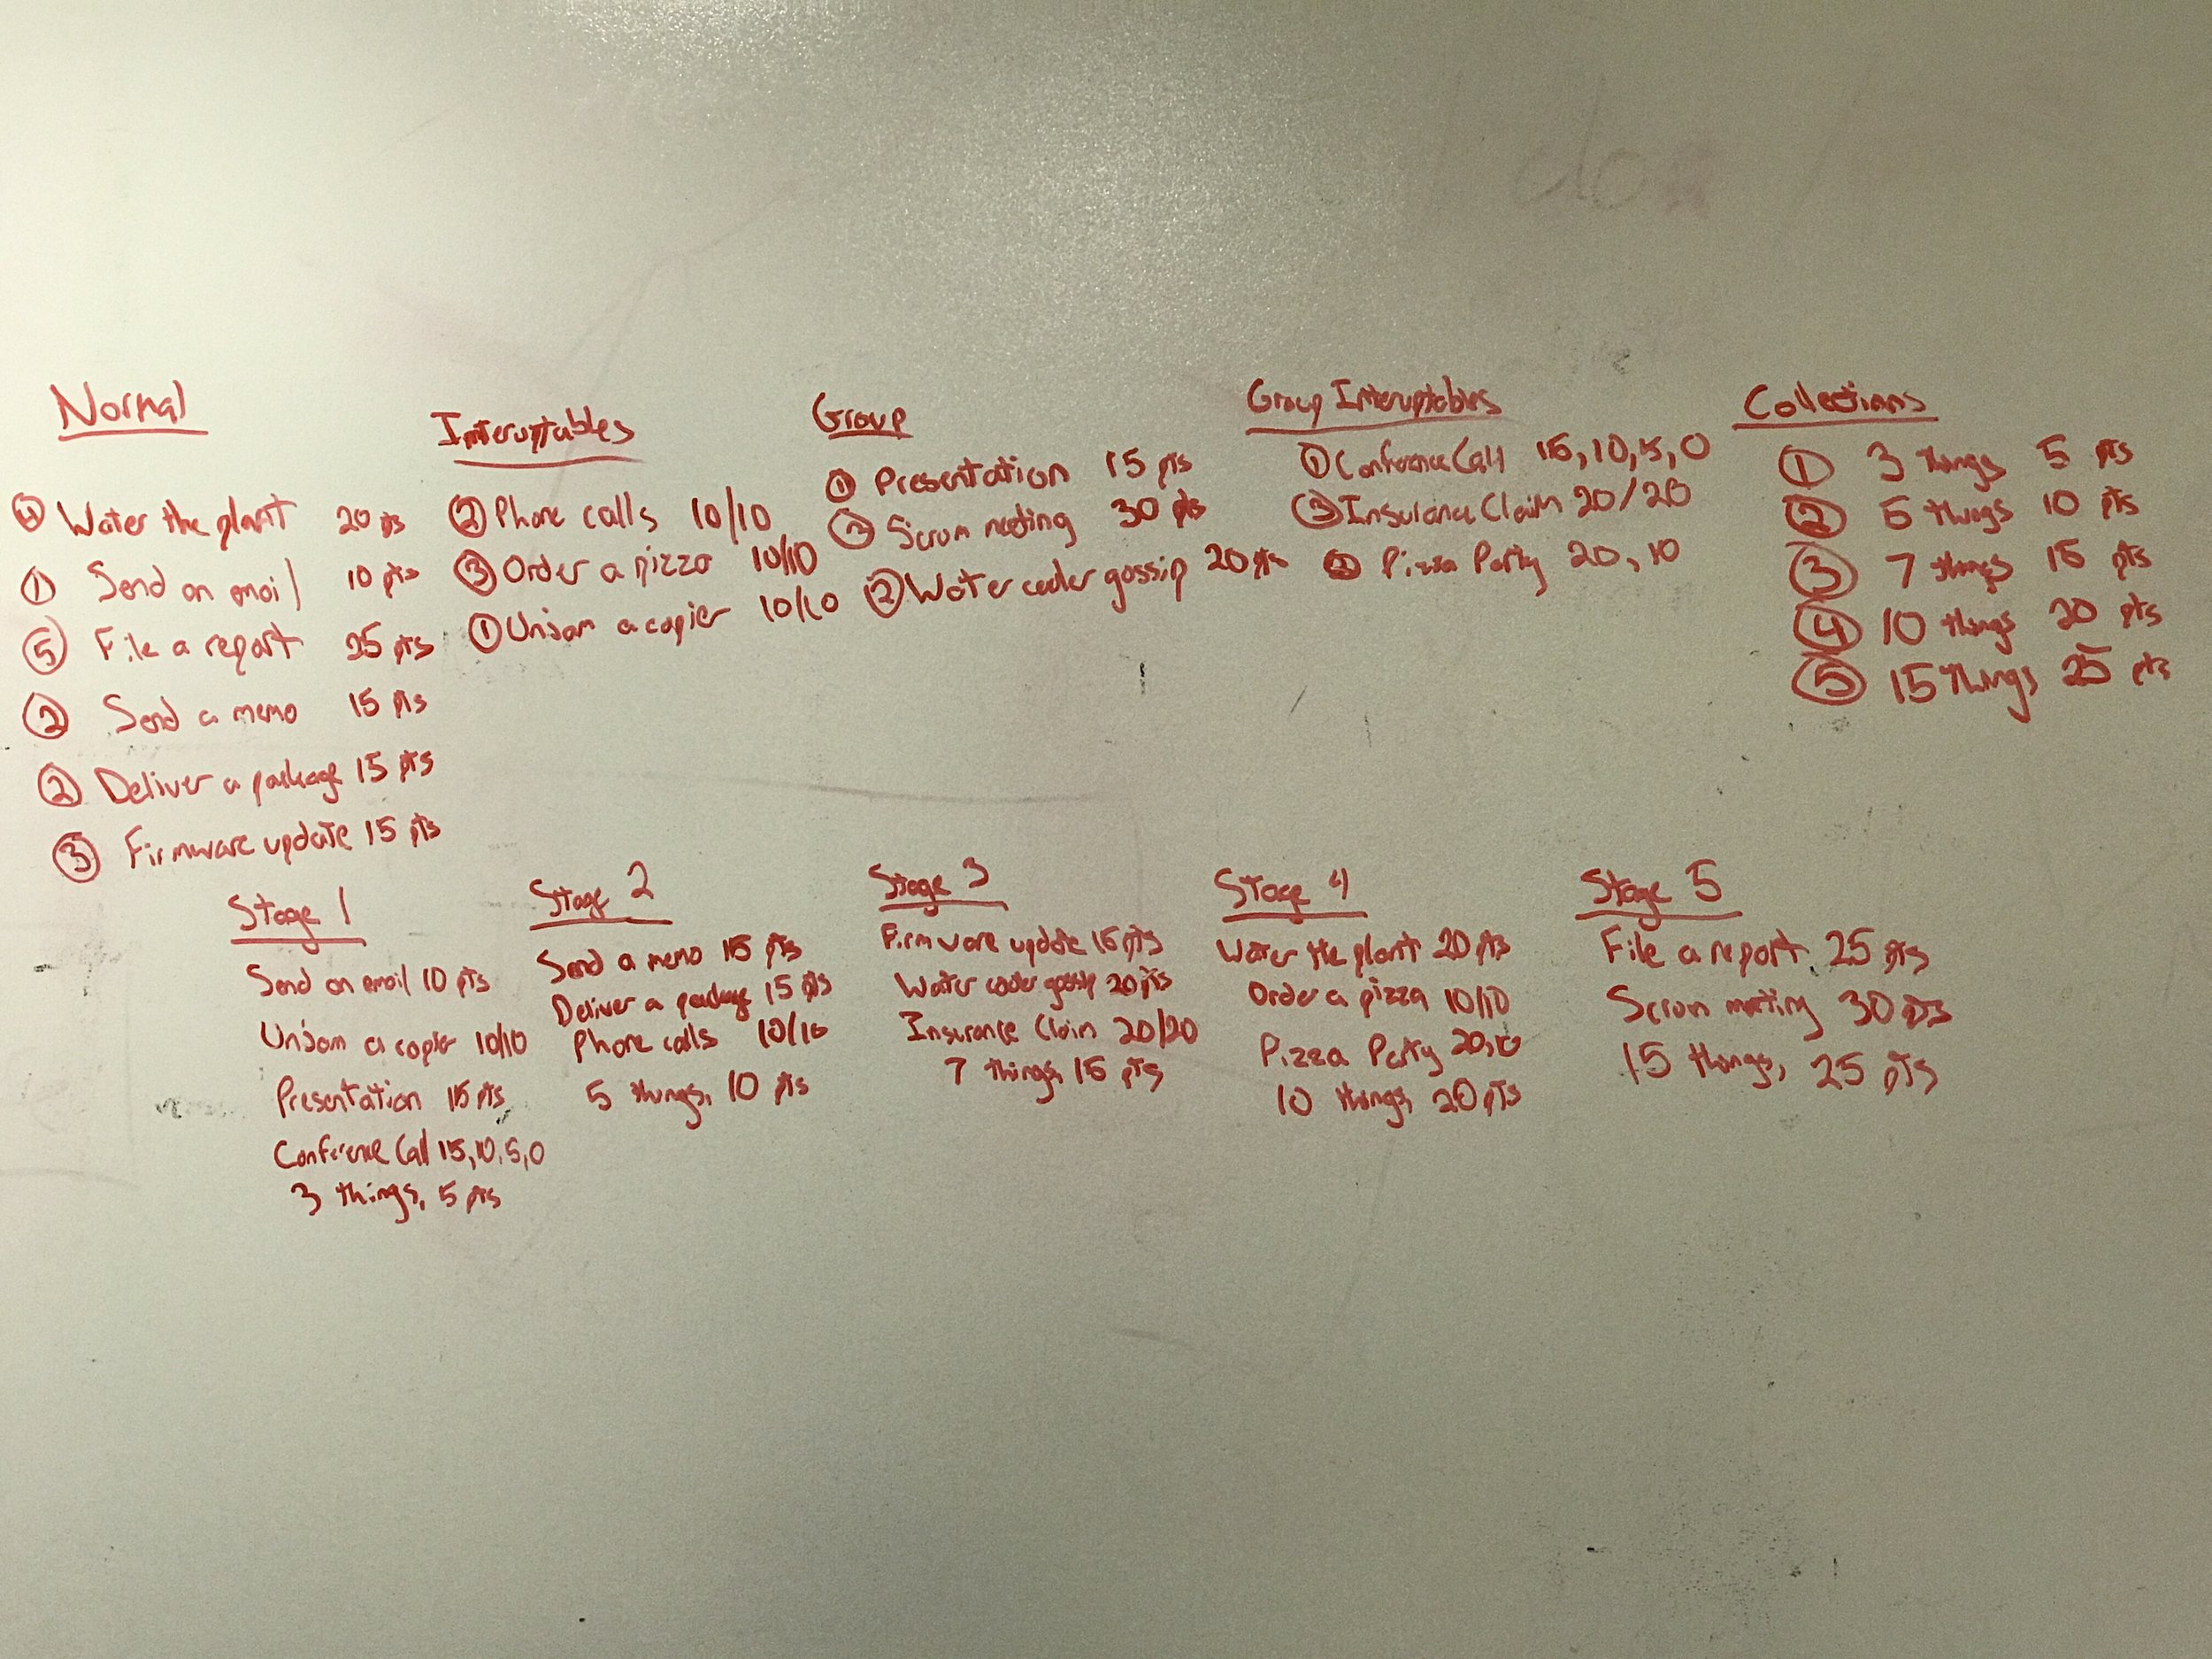 Normal
④ Water the plant 20 pts
① Send an email 10 pts
⑤ File a report 25 pts
② Send a memo 15 pts
② Deliver a package 15 pts
③ Firmware update 15 pts
Interuptables
② Phone calls 10/10
③ Order a pizza 10/10
① Unjam a copier 10/10
Group
① Presentation 15 pts
Scrum meeting 30 pts
② Water cooler gossip 20 pts
Group Interuptables
① Conference Call 15, 10, 5, 0
③ Insurance Claim 20/20
Pizza Party 20, 10
Collections
① 3 things 5 pts
② 5 things 10 pts
③ 7 things 15 pts
④ 10 things 20 pts
⑤ 15 things 25 pts
Stage 1
Send an email 10 pts
Unjam a copier 10/10
Presentation 15 pts
Conference Call 15, 10, 5, 0
3 things, 5 pts
Stage 2
Send a memo 15 pts
Deliver a package 15 pts
Phone calls 10/10
5 things, 10 pts
Stage 3
Firmware update 15 pts
Water cooler gossip 20 pts
Insurance Claim 20/20
7 things, 15 pts
Stage 4
Water the plant 20 pts
Order a pizza 10/10
Pizza Party 20, 10
10 things, 20 pts
Stage 5
File a report 25 pts
Scrum meeting 30 pts
15 things, 25 pts